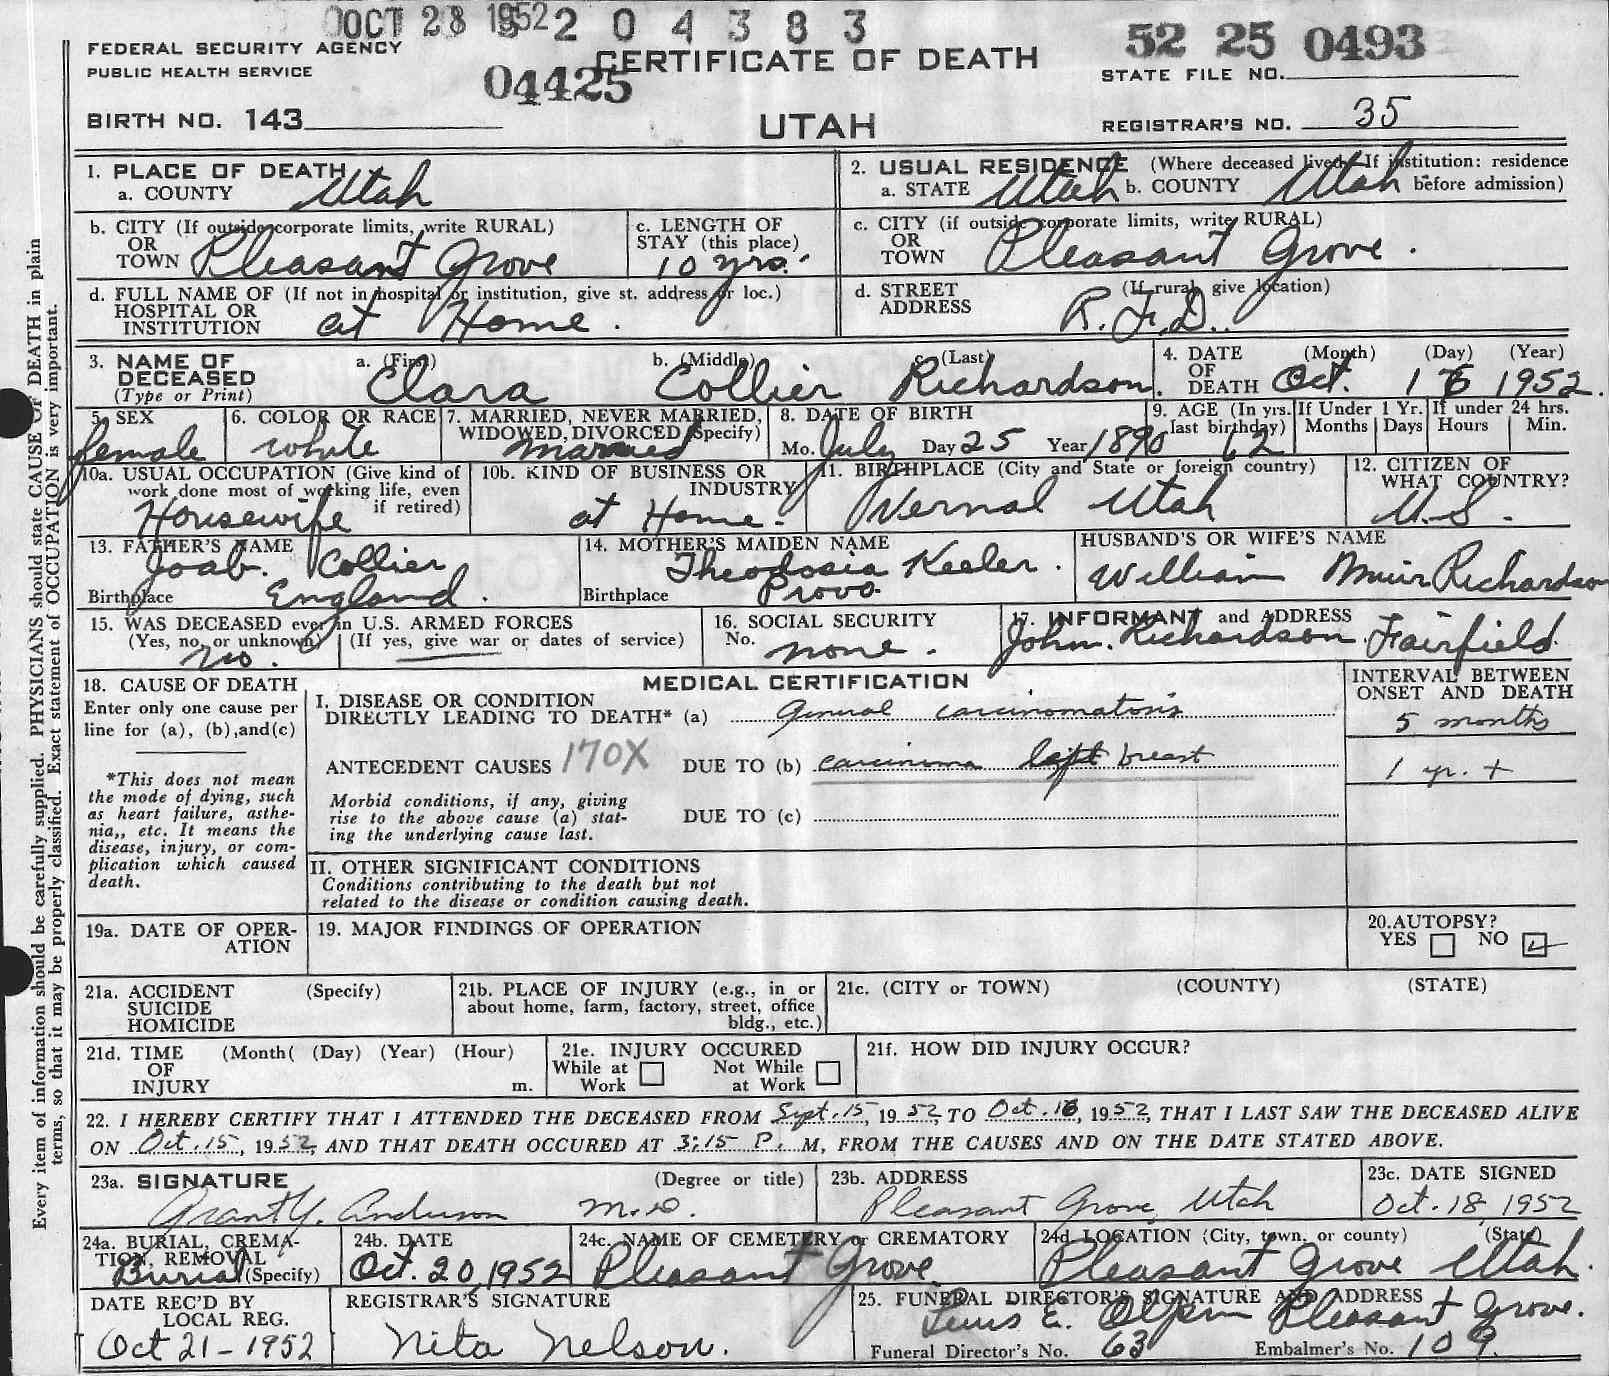 OCT 28 1952
5204383
52 25 0493
FEDERAL SECURITY AGENCY
PUBLIC HEALTH SERVICE
04425
CERTIFICATE OF DEATH
STATE FILE NO.
BIRTH NO. 143
UTAH
REGISTRAR'S NO. 35
Every item of information should be carefully supplied. PHYSICIANS should state CAUSE OF DEATH in plain
terms, so that it may be properly classified. Exact statement of OCCUPATION is very important.
1. PLACE OF DEATH
a. COUNTY Utah
2. USUAL RESIDENCE (Where deceased lived. If institution: residence
a. STATE Utah b. COUNTY Utah before admission)
b. CITY (If outside corporate limits, write RURAL)
OR
TOWN Pleasant Grove
c. LENGTH OF
STAY (this place)
10 yrs.
c. CITY (if outside corporate limits, write RURAL)
OR
TOWN Pleasant Grove.
d. FULL NAME OF (If not in hospital or institution, give st. address or loc.)
HOSPITAL OR
INSTITUTION at Home.
d. STREET (If rural, give location)
ADDRESS R.F.D.
3. NAME OF a. (First) b. (Middle) c. (Last)
DECEASED
(Type or Print) Clara Collier Richardson.
4. DATE (Month) (Day) (Year)
OF
DEATH Oct. 16 1952.
5. SEX
female
6. COLOR OR RACE
white
7. MARRIED, NEVER MARRIED,
WIDOWED, DIVORCED (Specify)
Married
8. DATE OF BIRTH
Mo. July Day 25 Year 1890
9. AGE (In yrs.
last birthday)
62
If Under 1 Yr.
Months Days
If under 24 hrs.
Hours Min.
10a. USUAL OCCUPATION (Give kind of
work done most of working life, even
if retired)
Housewife
10b. KIND OF BUSINESS OR
INDUSTRY
at Home.
11. BIRTHPLACE (City and State or foreign country)
Vernal Utah
12. CITIZEN OF
WHAT COUNTRY?
U.S.
13. FATHER'S NAME
Joab. Collier
Birthplace England.
14. MOTHER'S MAIDEN NAME
Theodosia Keeler.
Birthplace Provo.
HUSBAND'S OR WIFE'S NAME
William Muir Richardson
15. WAS DECEASED ever in U.S. ARMED FORCES
(Yes, no, or unknown) (If yes, give war or dates of service)
no.
16. SOCIAL SECURITY
No. none.
17. INFORMANT and ADDRESS
John. Richardson. Fairfield.
18. CAUSE OF DEATH
Enter only one cause per
line for (a), (b), and(c)
*This does not mean
the mode of dying, such
as heart failure, asthe-
nia,, etc. It means the
disease, injury, or com-
plication which caused
death.
MEDICAL CERTIFICATION
INTERVAL BETWEEN
ONSET AND DEATH
I. DISEASE OR CONDITION
DIRECTLY LEADING TO DEATH* (a) general carcinomatosis
5 months
ANTECEDENT CAUSES 170X DUE TO (b) carcinoma left breast
1 yr. +
Morbid conditions, if any, giving
rise to the above cause (a) stat-
ing the underlying cause last.
DUE TO (c)
II. OTHER SIGNIFICANT CONDITIONS
Conditions contributing to the death but not
related to the disease or condition causing death.
19a. DATE OF OPER-
ATION
19. MAJOR FINDINGS OF OPERATION
20. AUTOPSY?
YES NO
21a. ACCIDENT (Specify)
SUICIDE
HOMICIDE
21b. PLACE OF INJURY (e.g., in or
about home, farm, factory, street, office
bldg., etc.)
21c. (CITY or TOWN) (COUNTY) (STATE)
21d. TIME (Month( (Day) (Year) (Hour)
OF
INJURY m.
21e. INJURY OCCURED
While at Not While
Work at Work
21f. HOW DID INJURY OCCUR?
22. I HEREBY CERTIFY THAT I ATTENDED THE DECEASED FROM Sept. 15, 1952, TO Oct. 16, 1952, THAT I LAST SAW THE DECEASED ALIVE
ON Oct. 15, 1952, AND THAT DEATH OCCURED AT 3:15 P. M, FROM THE CAUSES AND ON THE DATE STATED ABOVE.
23a. SIGNATURE (Degree or title)
Grant Y. Anderson M.D.
23b. ADDRESS
Pleasant Grove, Utah
23c. DATE SIGNED
Oct. 18, 1952
24a. BURIAL, CREMA-
TION, REMOVAL
Burial (Specify)
24b. DATE
Oct. 20, 1952
24c. NAME OF CEMETERY or CREMATORY
Pleasant Grove.
24d. LOCATION (City, town, or county) (State)
Pleasant Grove Utah.
DATE REC'D BY
LOCAL REG.
Oct 21-1952
REGISTRAR'S SIGNATURE
Nita Nelson.
25. FUNERAL DIRECTOR'S SIGNATURE AND ADDRESS
E. Olpin Pleasant Grove.
Funeral Director's No. 63 Embalmer's No. 109.